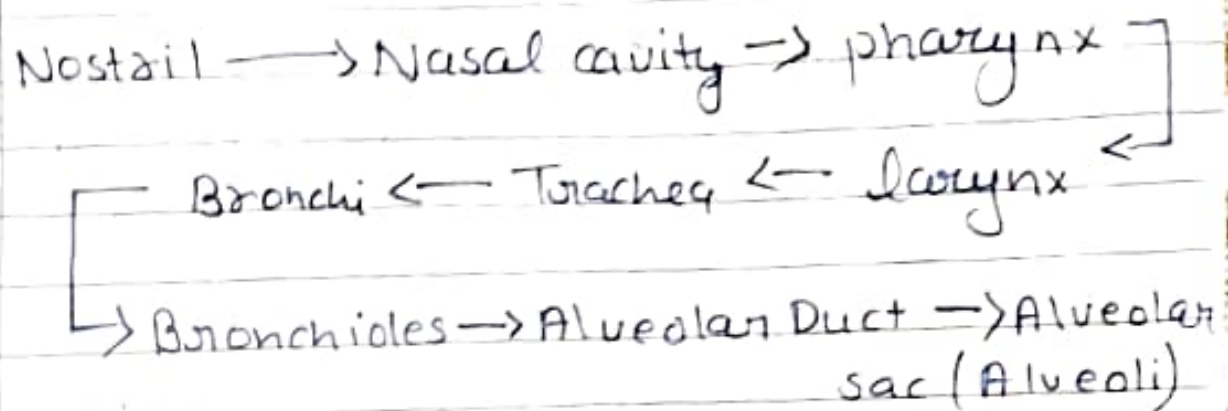 Nostril → Nasal cavity → pharynx
Bronchi ← Trachea ← larynx
Bronchioles → Alveolar Duct → Alveolar
sac (Alveoli)